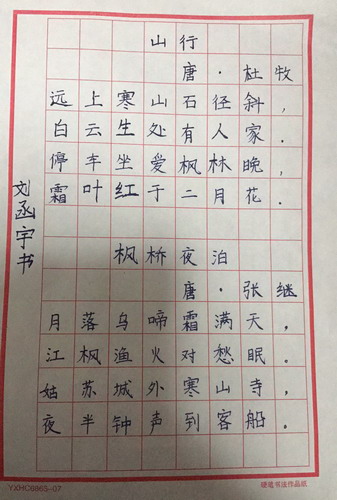 山行
唐·杜牧
远上寒山石径斜，
白云生处有人家．
停车坐爱枫林晚，
霜叶红于二月花．
枫桥夜泊
唐·张继
月落乌啼霜满天，
江枫渔火对愁眠。
姑苏城外寒山寺，
夜半钟声到客船。
刘函宇书
YXHC6865-07
硬笔书法作品纸